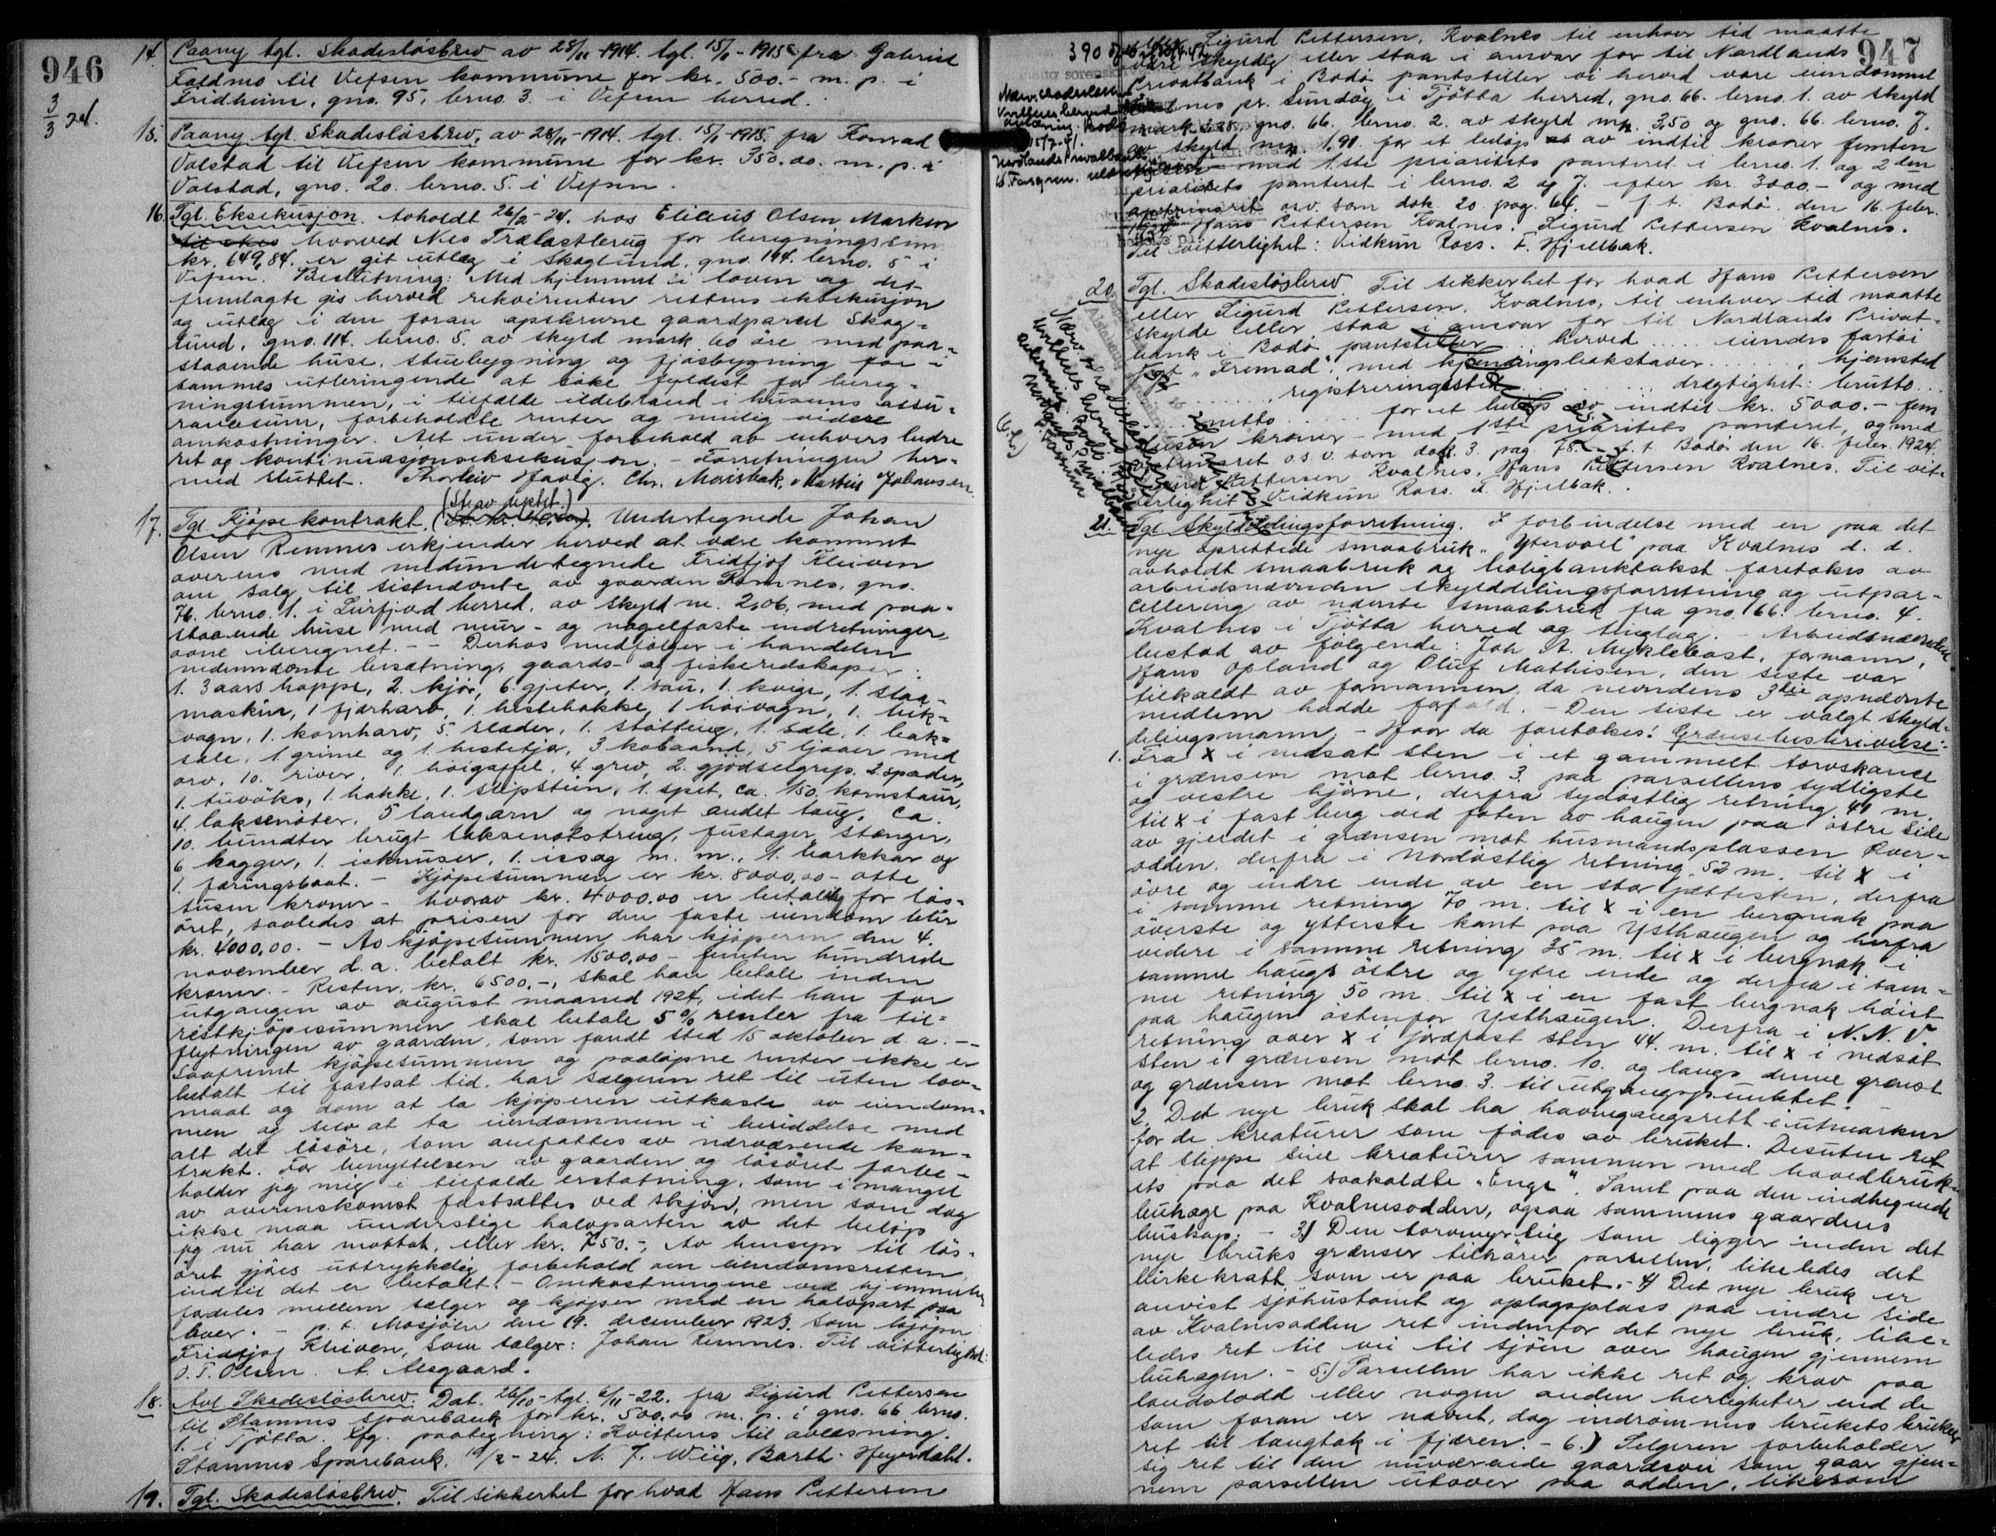 946
3/3 24.
14. Paany tgl. Skadesløsbrev av 28/11-1914. tgl. 15/1-1915 fra Gabriel
Faldmo til Vefsen kommune for kr. 500.- m. p. i
Fridheim, gno. 95, brno. 3. i Vefsen herred.
15. Paany tgl. Skadesløsbrev, av 28/11-1914. tgl. 15/1-1915 fra Konrad
Volstad til Vefsen kommune for kr. 350.00. m. p. i
Volstad, gno. 20. brno. 5. i Vefsen.
16. Tgl. Eksekusjon. Avholdt 26/2-24. hos Elicius Olsen Marken
hvorved Nes Trælastbrug for beregningssum
kr. 649,84. er git utlæg i Skoglund, gno. 114. brno. 5 i
Vefsen. Beslutning: Med hjemmel i loven og det
fremlagte gis herved rekvirenten rettens eksekusjon
og utlæg i den foran apskrevne gaardparcel Skog-
lund, gno. 114. brno. 5. av skyld mark 60 øre med paa-
staaende huse, stuebygning og fjøsbygning for i
sammes utbringende at søke fyldest for bereg-
ningssummen, i tilfælde ildebrand i husenes assu-
rancesum, forbeholdte renter og mulig videre
omkostninger. Alt under forbehold av enhvers bedre
ret og kontinuasjonseksekusjon. - Forretningen her-
med sluttet. Thorleiv Havig. Chr. Moisbak. Martin Johansen.
17. Tgl. Kjøpekontrakt. (St. av sletet.) Undertegnede Johan
Olsen Remnes erkjender herved at være kommet
overens med medundertegnede Fridtjof Kleiven
om salg til sistnævnte av gaarden Remnes, gno.
76. brno. 1. i Leirfjord herred, av skyld m. 2,06, med paa-
staaende huse med mur- og nagelfaste indretninger,
ovne iberegnet. - - Derhos medfølger i handelen
nedennævnte besætning, gaards- og fiskeredskaper:
1. 3 aars hoppe, 2. kjør, 6. gjeter, 1. sau, 1. kvige, 1. slaa-
maskin, 1 fjærharv, 1. hestehakke, 1 høivogn, 1. trik-
vogn, 1. kornharv, 5. slæder, 1. støtting, 1. sele, 1. bak-
sele, 1 grime og 1 hestetjor, 3 kobaand, 5 ljaaer med
orv, 10. river, 1 høigaffel, 4. grev, 2. gjødselgrep, 2. spader,
1. tuvøks, 1. hakke, 1. slipstein, 1. spet, ca. 150. kornstaur,
4. laksenøter, 5 landgarn og noget andet taug. Ca.
10. bundter brugt laksenotstreng, fustager, stænger,
6 kagger, 1. isknuser, 1. issag m. m., 1. barkkar og
1. færingsbaat. - Kjøpesummen er kr. 8000,00 - otte
tusen kroner - hvorav kr. 4000.00 er betaling for løs-
øret, saaledes at prisen for den faste eiendom blir
kr. 4000,00. - Av kjøpesummen har kjøperen den 4.
november d. a. betalt kr. 1500,00 - femten hundrede
kroner. - Resten, kr. 6500.-, skal han betale inden
utgangen av august maaned 1924, idet han for
restkjøpesummen skal betale 5 % renter fra til-
flytningen av gaarden, som fandt sted 15 oktober d. a. -
Saafremt kjøpesummen og paaløpne renter ikke er
betalt til fastsat tid, har sælgeren ret til uten lov-
maal og dom at la kjøperen utkaste av eiendom-
men og selv at ta eiendommen i besiddelse med
alt det løsøre, som omfattes av nærværende kon-
trakt. For benyttelsen av gaarden og løsøret forbe-
holder jeg mig i tilfælde erstatning, som i mangel
av overenskomst fastsættes ved skjøn, men som dog
ikke maa underslige halvparten av det beløp
jeg nu har mottat, eller kr. 750.-, Av hensyn til løs-
øret gjøres uttrykkelig forbehold om eiendomsretten
indtil det er betalt. - Omkostningene ved hjemmelen
fordeles mellem sælger og kjøper med en halvpart paa
hver. - p. t. Mosjøen den 19. december 1923. Som kjøper
Fridtjof Kleiven, Som sælger: Johan Remnes. Til vitterlighet:
O. T. Olsen. A. Aasgaard.
18. Avl. Skadesløsbrev. Dat. 26/10- tgl. 6/11-22. fra Sigurd Pettersen
til Stamnes Sparebank for kr. 500,00 m. p. i gno. 66 brno.
1. i Tjøtta. Efg. paategning: Kvitteres til avlæsning.
Stamnes Sparebank. 16/2-24. N. J. Wiig. Barth-Heyerdahl.
19. Tgl. Skadesløsbrev. Til sikkerhet for hvad Hans Pettersen
947
390
eller Sigurd Pettersen, Kvalnes til enhver tid maatte
være skyldig eller staa i ansvar for til Nordlands
Privatbank i Bodø pantstiller vi herved vore eiendommer
Kvalnes pr. Sundøy i Tjøtta herred, gno. 66. brno. 1. av skyld
mark 3,35, gno. 66. brno. 2. av skyld mrk 3,50 og gno. 66. brno. 7.
av skyld mrk 1,91 for et beløp av indtil kroner femten
tusen - med 1ste prioritets panteret i brno. 1. og 2den
prioritets panteret i brno. 2 og 7. efter kr. 3000.- og med
optrinsret osv. som dok. 20. pag. 64. - p. t. Bodø den 16. febr.
1924 Hans Pettersen Kvalnes. Sigurd Pettersen Kvalnes.
Til vitterlighet: Vidkun Ross. F. Hjelbak.
20. Tgl. Skadesløsbrev. Til sikkerhet for hvad Hans Pettersen
eller Sigurd Pettersen, Kvalnes, til enhver tid maatte
skylde eller staa i ansvar for til Nordlands Privat-
bank i Bodø pantstiller ... herved ..... eiendes fartøi
"Fremad", med kjendingsbokstaver ........, hjemsted
......., registreringssted ........, drægtighet: brutto ...
..... netto ..... for et beløp av indtil kr. 5000.- fem
tusen kroner - med 1ste prioritets panteret, og med
optrinsret o.s.v. som dok. 3. pag. 75. - p. t. Bodø den 16. febr. 1924.
Sigurd Pettersen Kvalnes. Hans Pettersen Kvalnes. Til vit-
terlighet: Vidkun Ross. F. Hjelbak.
21. Tgl. Skylddelingsforretning. I forbindelse med en paa det
nye oprettede smaabruk "Ytervoll" paa Kvalnes d. d.
avholdt smaabruk og boligbanktakst foretokes av
arbeidsnævnden skylddelingsforretning og utpar-
cellering av nævnte smaabruk fra gno. 66. brno. 4.
Kvalnes i Tjøtta herred og tinglag. - Arbeidsnævnden
bestod av følgende: Joh. A. Myklebost, formann,
Hans Opland og Oluf Mathisen, den siste var
tilkaldt av formannen, da nevndens 3die opnævnte
medlem hadde forfald. - Den siste er valgt skyld-
delingsmann. - Hvor da foretokes: Grænsebeskrivelse:
1. Fra X i nedsat sten i et gammelt torvskaar
i grænsen mot brno. 3. paa parsellens sydligste
og vestre hjørne, derfra sydøstlig retning 41 m.
til X i fast berg ved foten av haugen paa østre side
av gjerdet i grænsen mot husmandsplassen Øver-
odden. derfra i Nordøstlig retning 52 m. til X i
øvre og indre ende av en stor jættesten, derfra
i samme retning 70 m. til X i en bergnak paa
øverste og ytterste kant paa Ysthaugen og herfra
videre i samme retning 35 m. til X i bergnak i
samme haugs østre og ytre ende og derfra i sam-
me retning 50 m. til X i en fast bergnak høist
paa haugen østenfor Ysthaugen. Derfra i N. N. V.
retning over X i jordfast sten 44. m. til X i nedsat
sten i grænsen mot brno. 10. og langs denne grænse
og grænsen mot brno. 3. til utgangspunktet.
2. Det nye bruk skal ha havnegangsrett i utmarken
for de kreaturer som fødes av bruket. Desuten ret
at slippe sine kreaturer sammen med hovedbruk-
ets paa det saakaldte "Enge". Samt paa den indhegnede
buhage paa Kvalnesodden, ogsaa sammens gaardens
buskap. - 3) Den torvmyrteig som ligger inden det
nye bruks grænser tilhører parsellen, likeledes det
birkekratt som er paa bruket. - 4) Det nye bruk er
anvist sjøhustomt og oplagsplass paa indre side
av Kvalnesodden ret indenfor det nye bruk, like-
ledes ret til vei til sjøen over haugen gjennem
buhagen. - 5.) Parsellen har ikke ret og krav paa
landslodd eller nogen anden herligheter end de
som foran er nævnt, dog indrømmes brukets bruker
ret til tangtak i fjæren. - 6.) Selgeren forbeholder
sig ret til den nuværende gaardsvei som gaar gjen-
nem parsellen utover paa odden, likesom